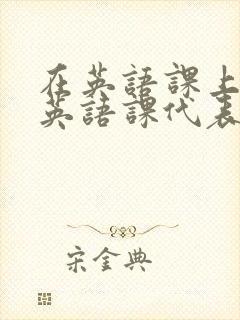 在英語課上
英語課代表
宋金典